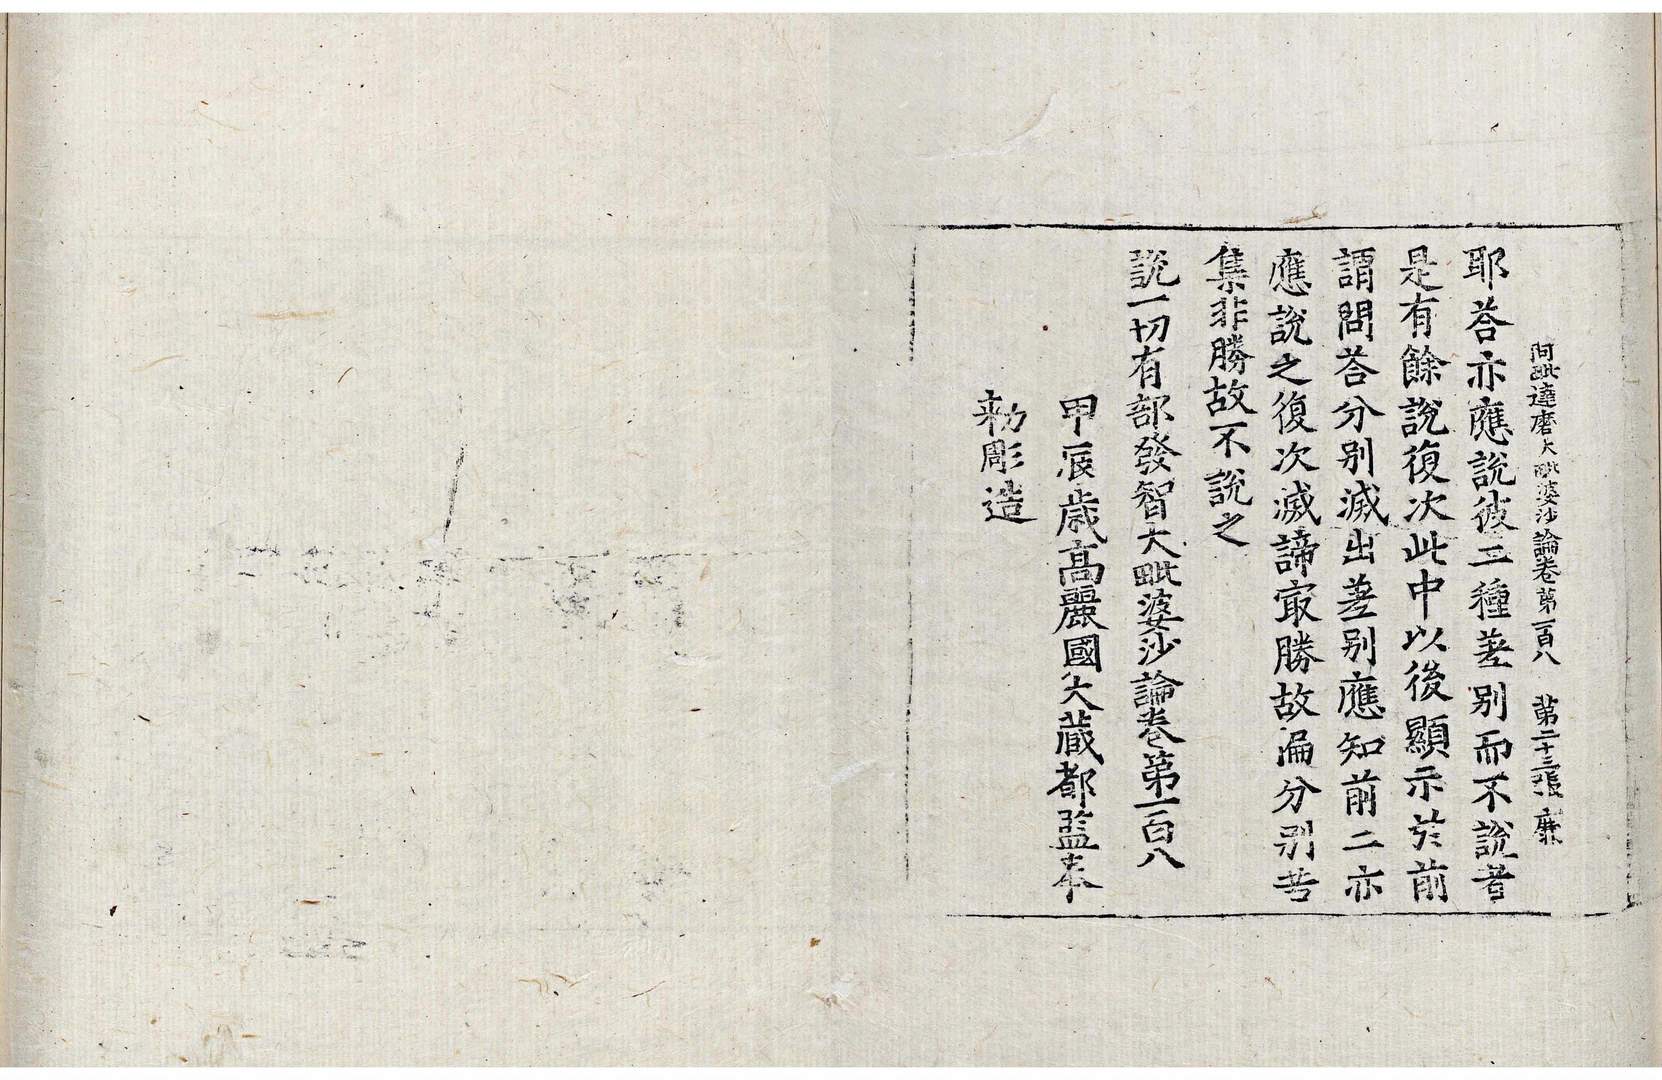 阿毗達磨大毗婆沙論卷第一百八　第二十三張　廉
耶荅亦應說彼二種差别而不說者
是有餘說復次此中以後顯示於前
謂問荅分别滅出差别應知前二亦
應說之復次滅諦㝡勝故漏分别苦
集非勝故不說之
說一切有部發智大毗婆沙論卷第一百八
甲辰歲高麗國大藏都監奉
勑彫造